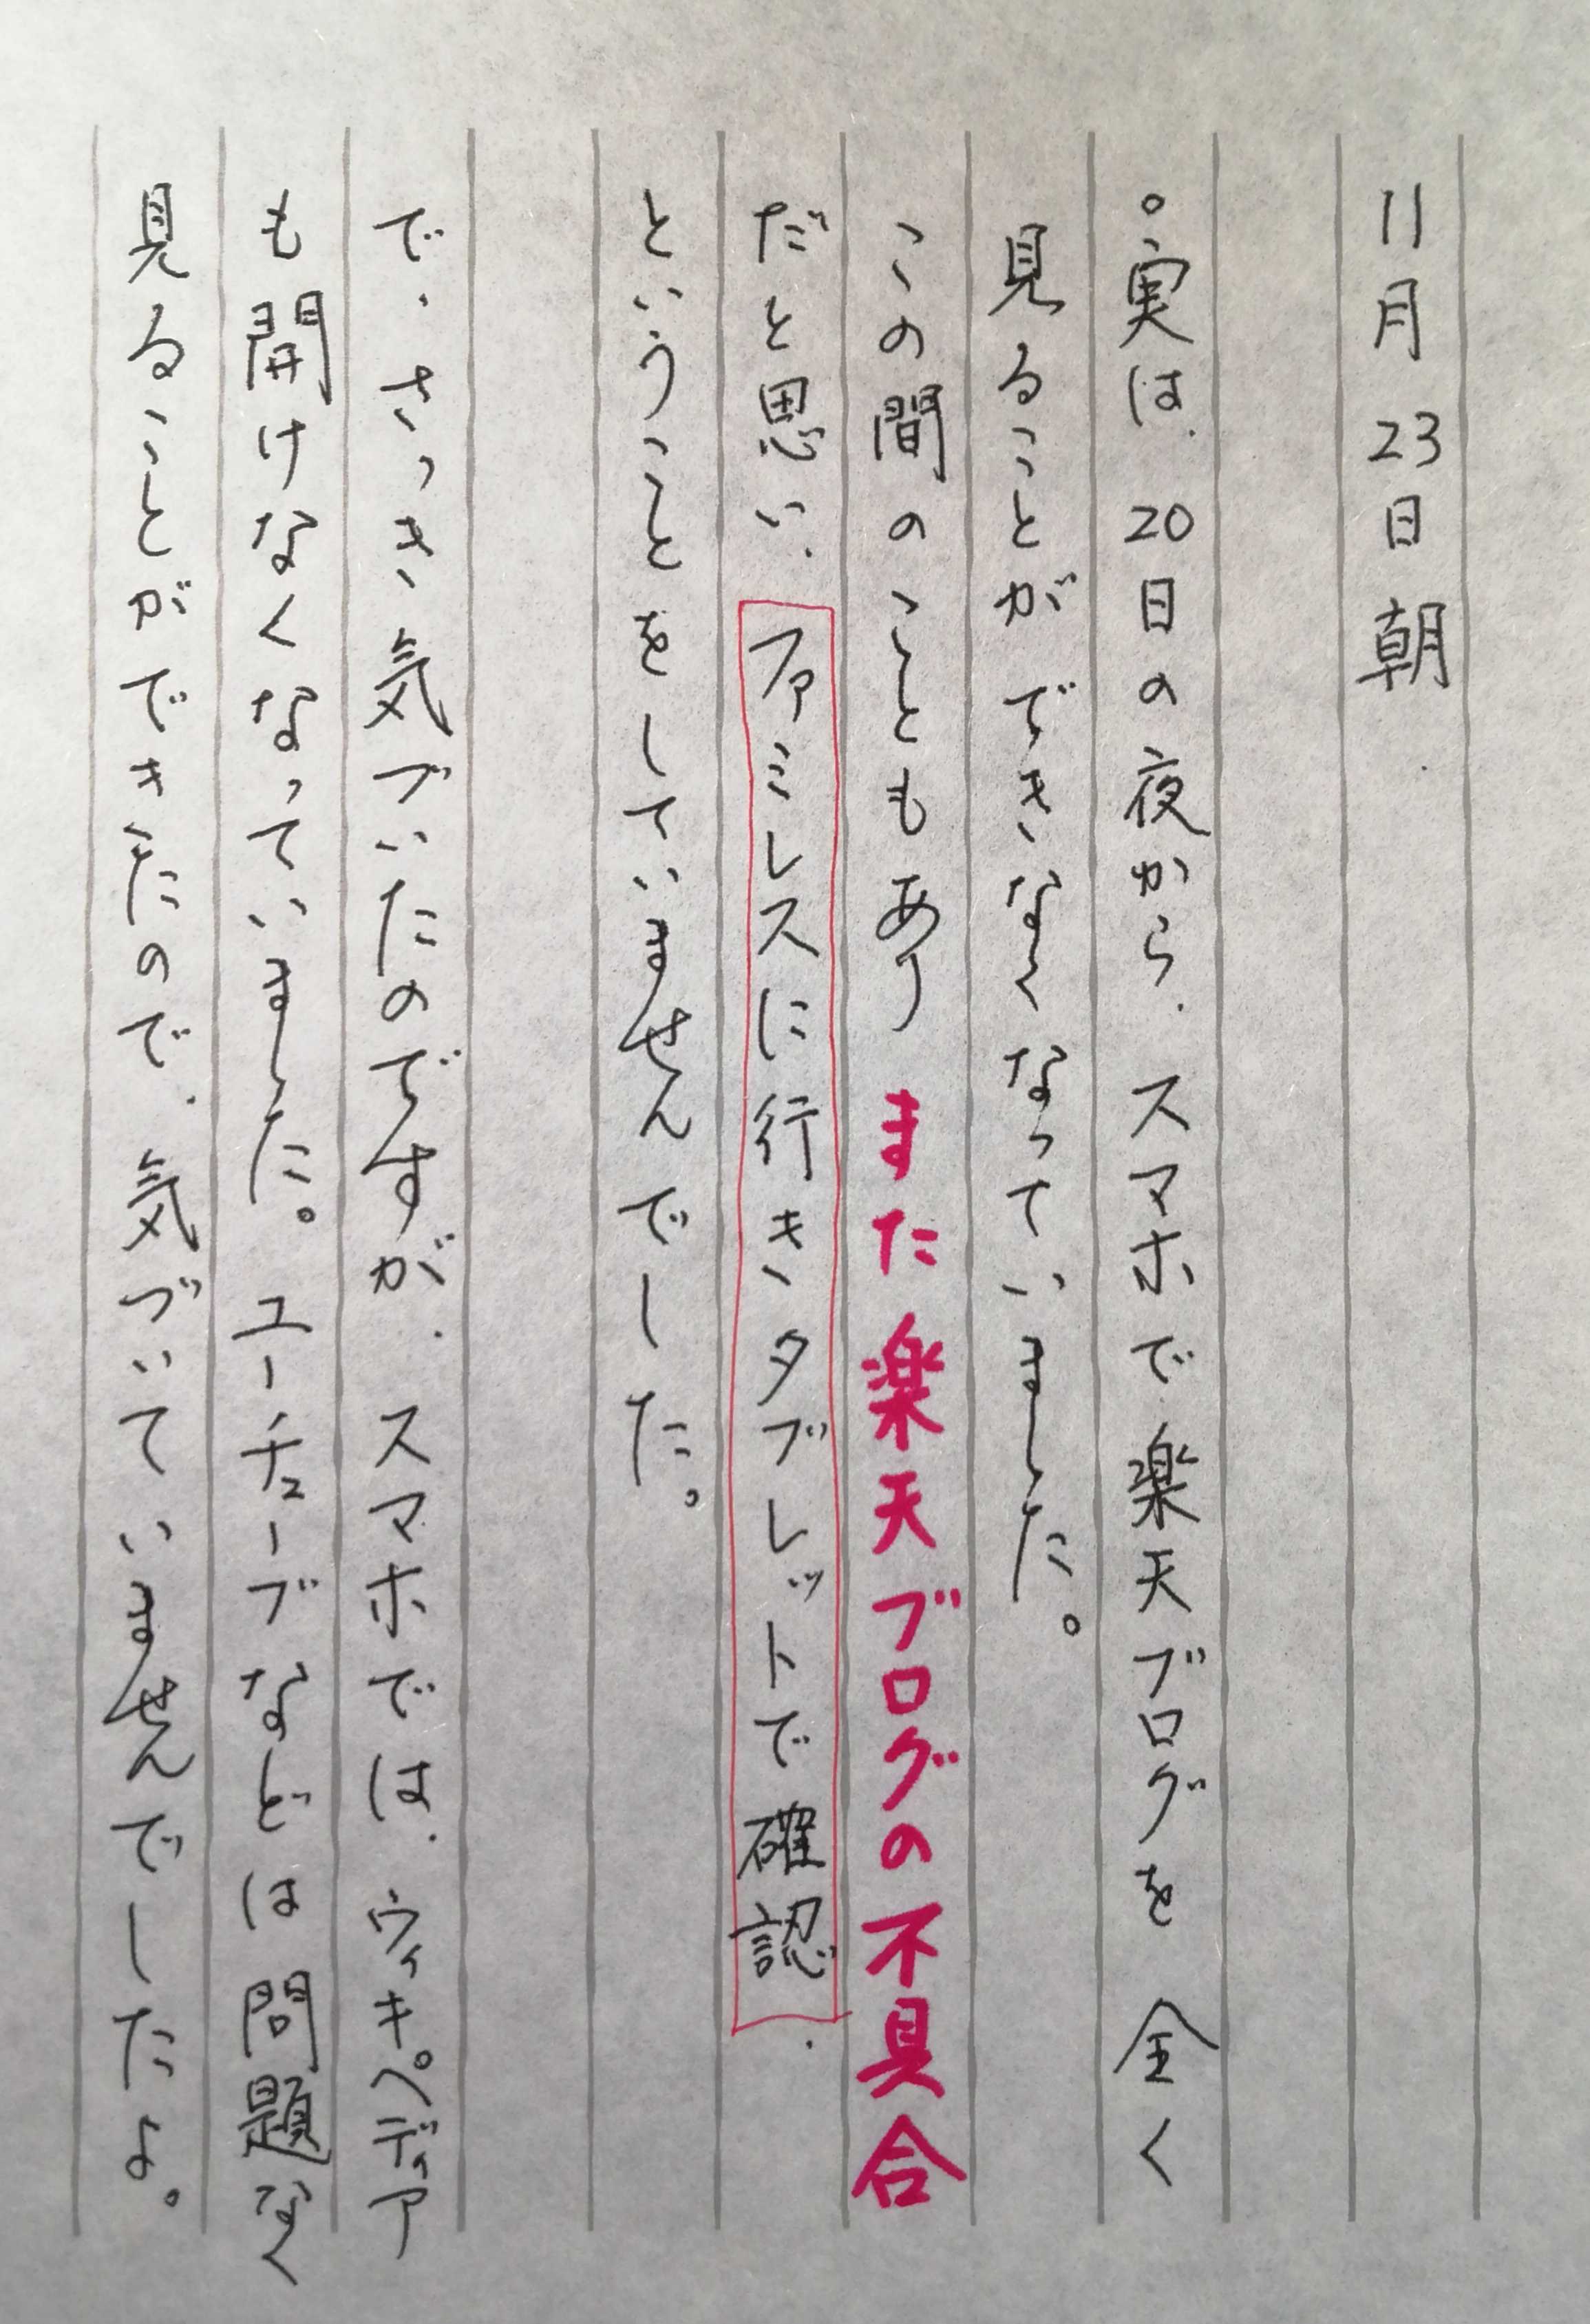 11月23日 朝
。実は、20日の夜から、スマホで楽天ブログを全く
見ることができなくなっていました。
この間のこともあり また楽天ブログの不具合
だと思い、ファミレスに行きタブレットで確認、
ということをしていませんでした。
で、さっき気づいたのですが、スマホでは、ウィキペディア
も開けなくなっていました。ユーチューブなどは問題なく
見ることができたので、気づいていませんでしたよ。